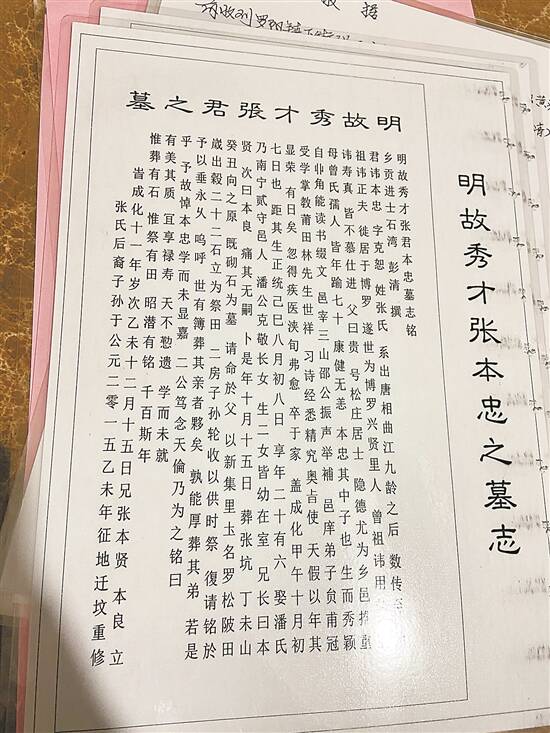 明故秀才张本忠之墓志
明故秀才張君之墓
明故秀才张君本忠墓志铭
乡贡进士石湾 彭清 撰
君讳本忠 字克恕 姓张氏 系出唐相曲江九龄之后 数传至
祖讳正夫 徙居于博罗 遂世为博罗兴贤里人 曾祖讳用
讳寿真 皆不慕仕进 父曰贵 号松庄居士 隐德尤为乡邑推重
母曾氏孺人 皆年踰七十 康健无恙 本忠其中子也 生而秀颖
自丱角能读书缀文 邑宰三山邵公振声举补 邑庠弟子贠甫冠
受学掌教莆田林先生世祥 习诗经悉精究奥旨使 天假以年其
显荣 有日矣 忽得疾医浃旬弗愈 卒于家 盖成化甲午十月初
七日也 距其生正统己巳八月初八日 享年二十有六 娶潘氏
乃南宁贰守邑人 潘公克敬长女 生二女皆幼在室 兄长曰本
贤 次曰本良 痛其无嗣 卜是年十月十五日 葬张坑 丁未山
癸丑向之原 既砌石为墓 请命於父 以新集里圡名罗松陂田
歳出穀二十二石立为祭田 二房子孙轮收以供时祭 復请铭於
予以垂永乆 呜呼 世有簿葬其亲者夥矣 孰能厚葬其弟 若是
乎 予故悼本忠学而未显嘉 二公笃念天倫乃为之铭曰
有美其质 宜享禄寿 天不憗遗 学而未就
惟葬有石 惟祭有田 昭潜有铭 千百斯年
旹成化十一年岁次乙未十二月十五日兄张本贤 本良立
张氏后裔子孙于公元二零一五乙未年征地迁坟重修